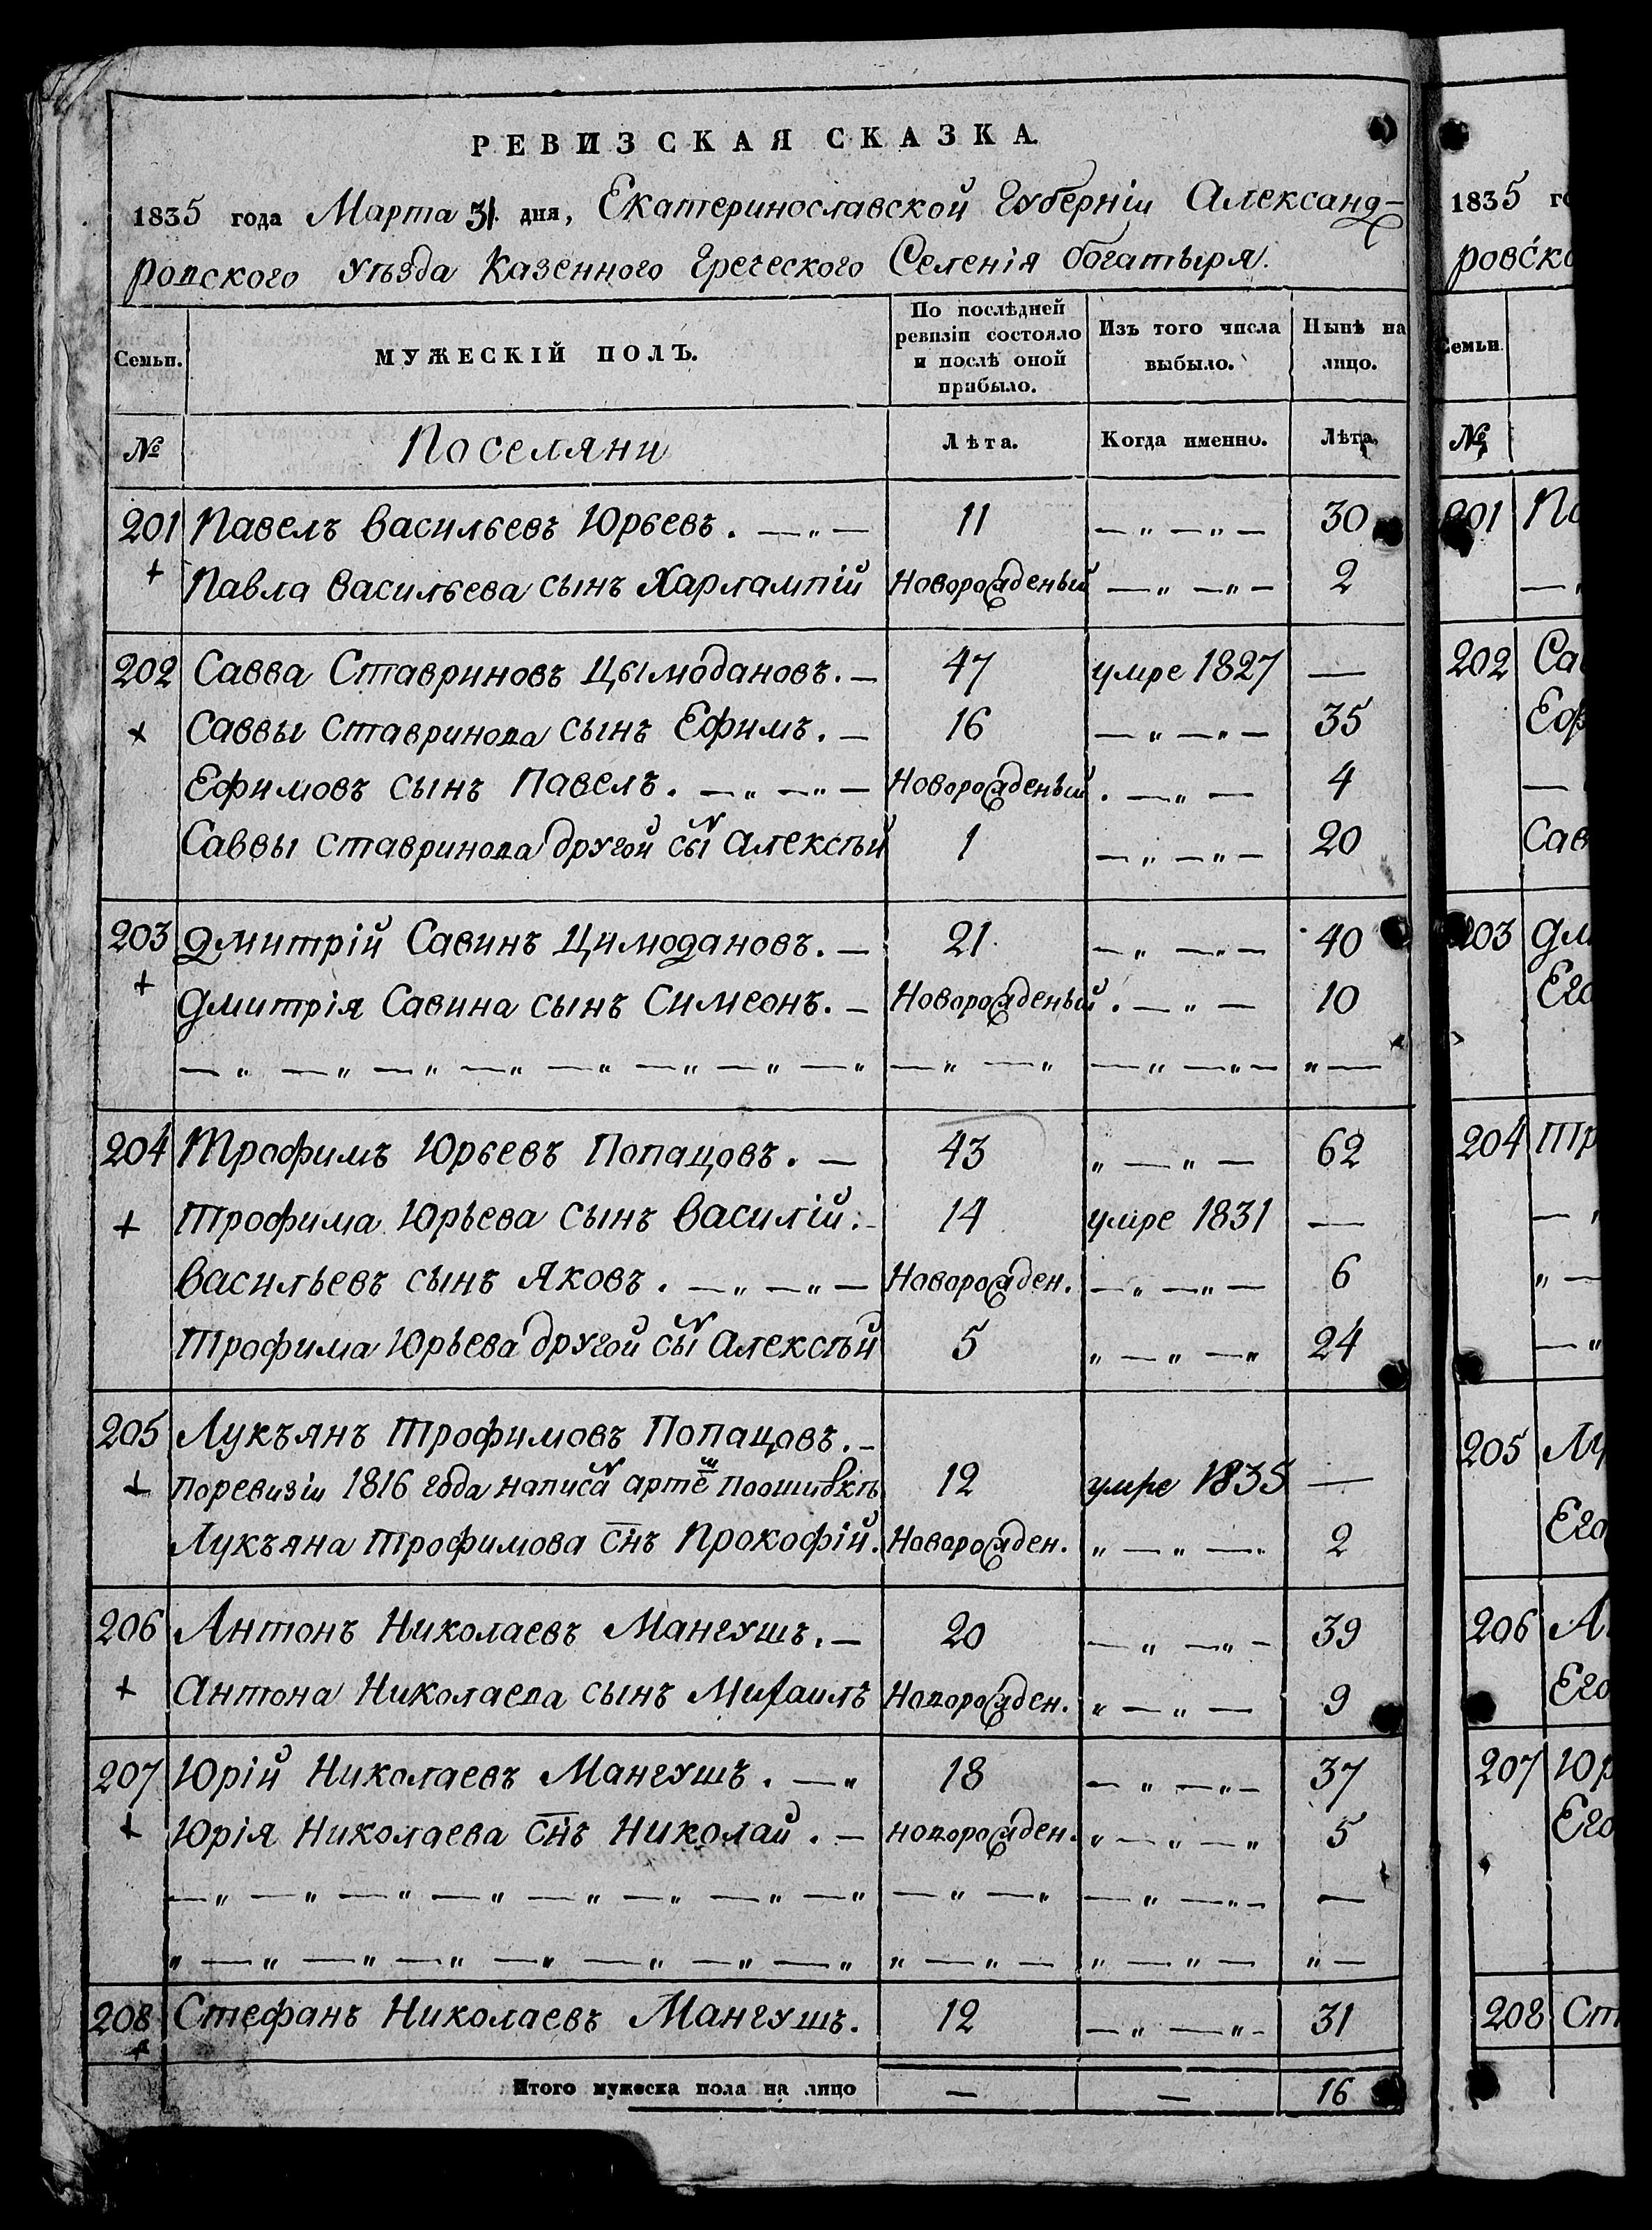 РЕВИЗСКАЯ СКАЗКА
1835 года Марта 31 дня, Екатеринославской Губерніи Александ-
ровского Уѣзда Казенного Греческого Селенія богатыря.
Семьи. МУЖЕСКІЙ ПОЛЪ. По послѣдней ревизіи состояло и послѣ оной прибыло. Изъ того числа выбыло. Нынѣ на лицо.
№ Поселяни Лѣта. Когда именно. Лѣта.
201 Павелъ Васильевъ Юрьевъ. — „ — 11 — „ — „ — 30
+ Павла Васильева сынъ Харлампій Новорожденый — „ — „ — 2
202 Савва Ставриновъ Цымодановъ. — 47 умре 1827 —
+ Саввы Ставринова сынъ Ефимъ. — 16 — „ — „ — 35
Ефимовъ сынъ Павелъ. — „ — „ — Новорожденый. — „ — 4
Саввы Ставринова другой сын Алексѣй 1 — „ — „ — 20
203 Дмитрій Савинъ Цимодановъ. — 21. — „ — „ — 40
+ Дмитрія Савина сынъ Симеонъ. — Новорожденый. — „ — 10
— „ — „ — „ — „ — „ — „ — „ — „ — „ — „ — „ — „ — „ —
204 Трофимъ Юрьевъ Попацовъ. — 43 „ — „ — 62
+ Трофима Юрьева сынъ Василій. — 14 умре 1831 —
Васильевъ сынъ Яковъ. — „ — „ — Новорожден. — „ — „ — 6
Трофима Юрьева другой сын Алексѣй 5 „ — „ — „ 24
205 Лукъянъ Трофимовъ Попацовъ. —
+ Поревизіи 1816 года написан артеш поошибкѣ 12 умре 1835 —
Лукъяна Трофимова снъ Прокофій. Новорожден. „ — „ — „ 2
206 Антонъ Николаевъ Мангушъ. — 20 — „ — „ — 39
+ Антона Николаева сынъ Михаилъ Новорожден. „ — „ — 9
207 Юрій Николаевъ Мангушъ. — „ 18 — „ — „ — 37
+ Юрія Николаева снъ Николай. — Новорожден. „ — „ — „ 5
— „ — „ — „ — „ — „ — „ — „ — „ — „ — „ — „ — „ — —
„ — „ — „ — „ — „ — „ — „ — „ „ — „ — „ — „ — „ —
208 Стефанъ Николаевъ Мангушъ. 12 — „ — „ — 31
+
Итого мужеска пола на лицо — — 16
1835 го
ровско
Семьи.
№
201 Па
— „
202 Сав
Еф
—
Сав
203 Дм
Его
204 Тр
— „
„ —
— „
205 Лу
Его
206 А
Его
207 Юр
Его
208 Ст